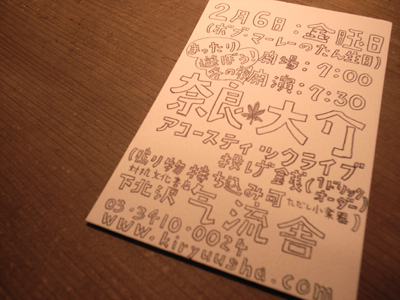 2月6日:金曜日
(ボブ・マーレーのたん生日)
まったり 開場:7:00
遊ぼう
冬の 開演:7:30
奈良大介
アコースティックライブ
投げ銭(1ドリンクオーダー)
(鳴り物持ち込み可 ただし小音器)
対抗文化専
下北沢 气流舎
03-3410-0024
www.kiryuusha.com